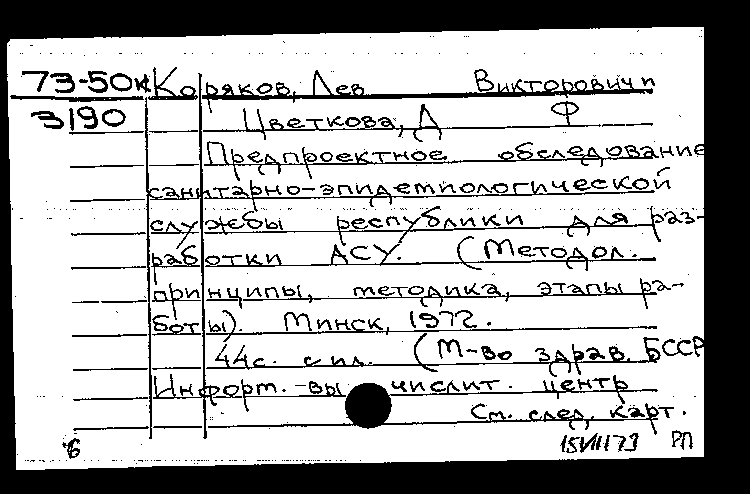 73-50к Коряков, Лев Викторович п
3190 Цветкова, Д Ф
Предпроектное обследование
санитарно-эпидемиологической
службы республики для раз-
работки АСУ. (Методол.
принципы, методика, этапы ра-
боты). Минск, 1972.
44с. с ил. (М-во здрав. БССР
Информ.-вычислит. центр
См. след. карт.
6 15VIII73 РП